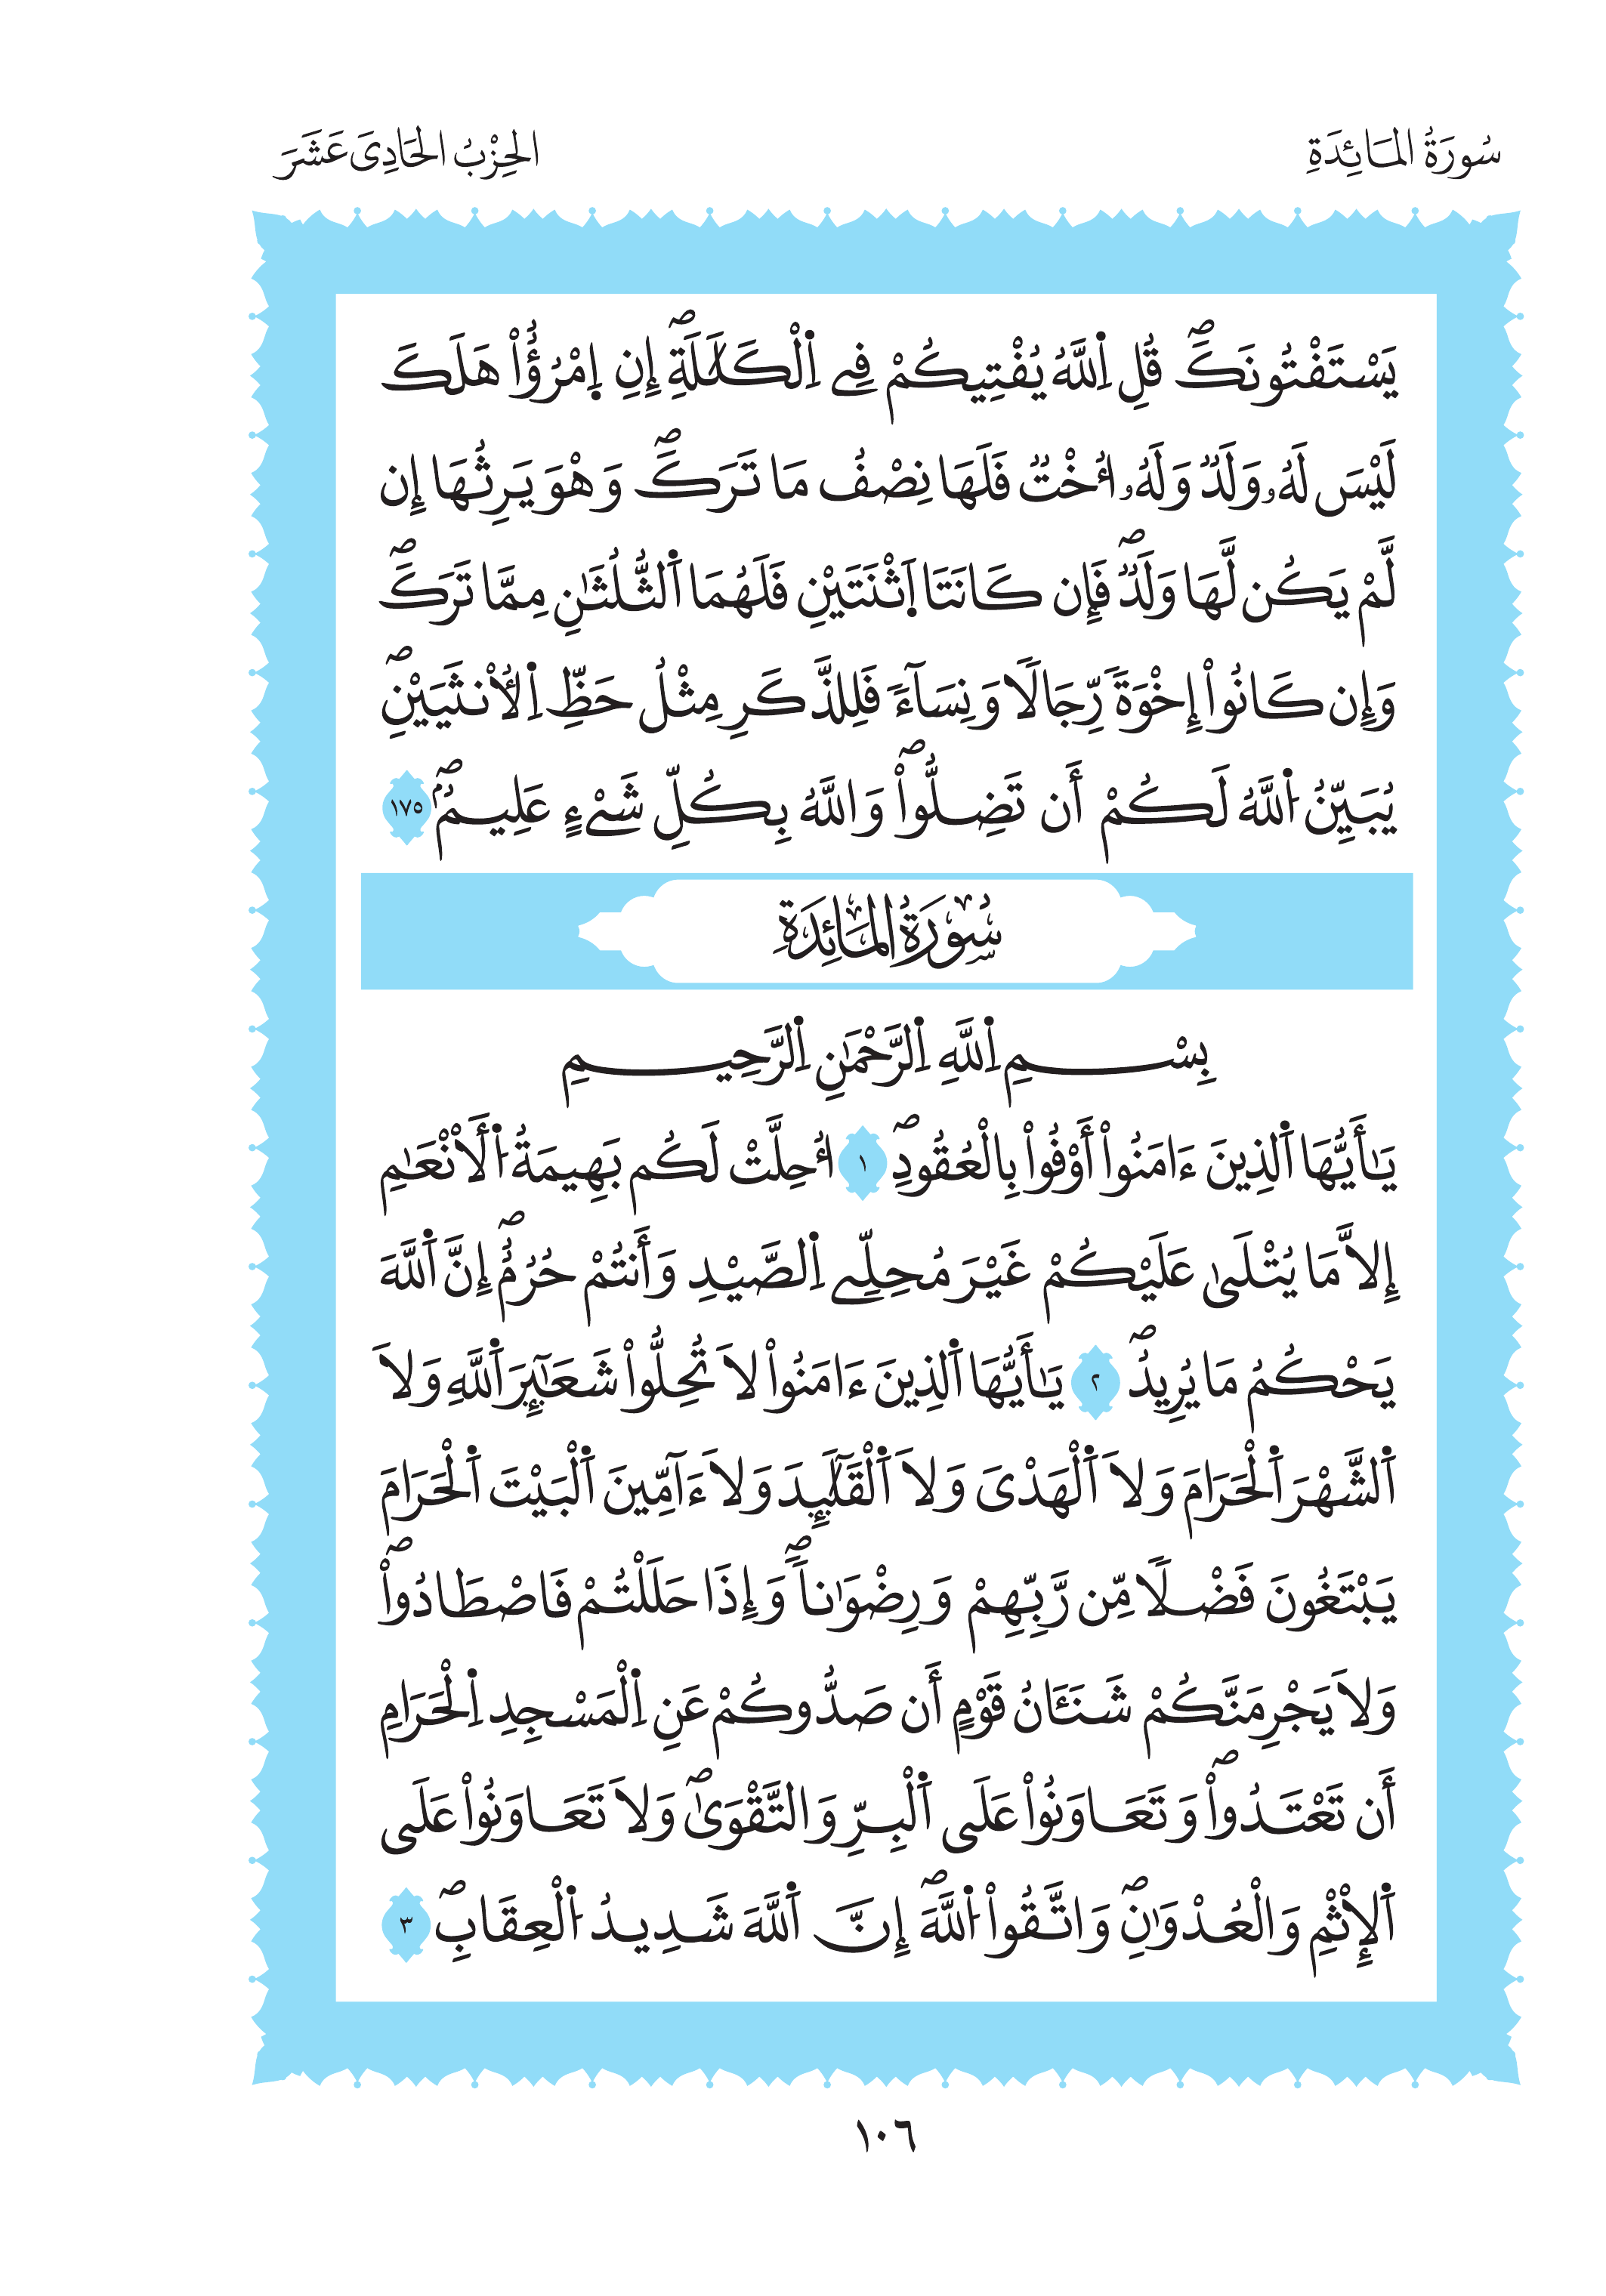 سُورَةُ المَائِدَةِ
الحِزْبُ الحَادِىَ عَشَرَ
يَسْتَفْتُونَكَۖ قُلِ اِ۬للَّهُ يُفْتِيكُمْ فِے اِ۬لْكَلَٰلَةِۖ إِنِ اِ۪مْرُؤٌاْ هَلَكَ
لَيْسَ لَهُۥ وَلَدٞ وَلَهُۥٓ أُخْتٞ فَلَهَا نِصْفُ مَا تَرَكَۖ وَهْوَ يَرِثُهَا إِن
لَّمْ يَكُن لَّهَا وَلَدٞۖ فَإِن كَانَتَا اَ۪ثْنَتَيْنِ فَلَهُمَا اَ۬لثُّلُثَٰنِ مِمَّا تَرَكَۖ
وَإِن كَانُواْ إِخْوَةٗ رِّجَالٗا وَنِسَآءٗ فَلِلذَّكَرِ مِثْلُ حَظِّ اِ۬لْأُنثَيَيْنِۖ
يُبَيِّنُ اُ۬للَّهُ لَكُمْ أَن تَضِلُّواْۖ وَاللَّهُ بِكُلِّ شَےْءٍ عَلِيمٞۖ ١٧٥
سُورَةُ المَائِدَةِ
بِسْمِ اِ۬للَّهِ اِ۬لرَّحْمَٰنِ اِ۬لرَّحِيمِ
يَٰأَيُّهَا اَ۬لذِينَ ءَامَنُواْ أَوْفُواْ بِالْعُقُودِۖ ١ أُحِلَّتْ لَكُم بَهِيمَةُ اُ۬لْأَنْعَٰمِ
إِلاَّ مَا يُتْلَىٰ عَلَيْكُمْ غَيْرَ مُحِلِّے اِ۬لصَّيْدِ وَأَنتُمْ حُرُمٌۖ إِنَّ اَ۬للَّهَ
يَحْكُمُ مَا يُرِيدُۖ ٢ يَٰأَيُّهَا اَ۬لذِينَ ءَامَنُواْ لاَ تُحِلُّواْ شَعَٰٓئِرَ اَ۬للَّهِ وَلاَ
اَ۬لشَّهْرَ اَ۬لْحَرَامَ وَلاَ اَ۬لْهَدْىَ وَلاَ اَ۬لْقَلَٰٓئِدَ وَلاَ ءَآمِّينَ اَ۬لْبَيْتَ اَ۬لْحَرَامَ
يَبْتَغُونَ فَضْلٗا مِّن رَّبِّهِمْ وَرِضْوَٰناٗۖ وَإِذَا حَلَلْتُمْ فَاصْطَادُواْۖ
وَلاَ يَجْرِمَنَّكُمْ شَنَـَٔانُ قَوْمٍ أَن صَدُّوكُمْ عَنِ اِ۬لْمَسْجِدِ اِ۬لْحَرَامِ
أَن تَعْتَدُواْۖ وَتَعَاوَنُواْ عَلَى اَ۬لْبِرِّ وَالتَّقْوَىٰۖ وَلاَ تَعَاوَنُواْ عَلَى
اَ۬لْإِثْمِ وَالْعُدْوَٰنِۖ وَاتَّقُواْ اُ۬للَّهَۖ إِنَّ اَ۬للَّهَ شَدِيدُ اُ۬لْعِقَابِۖ ٣
١٠٦